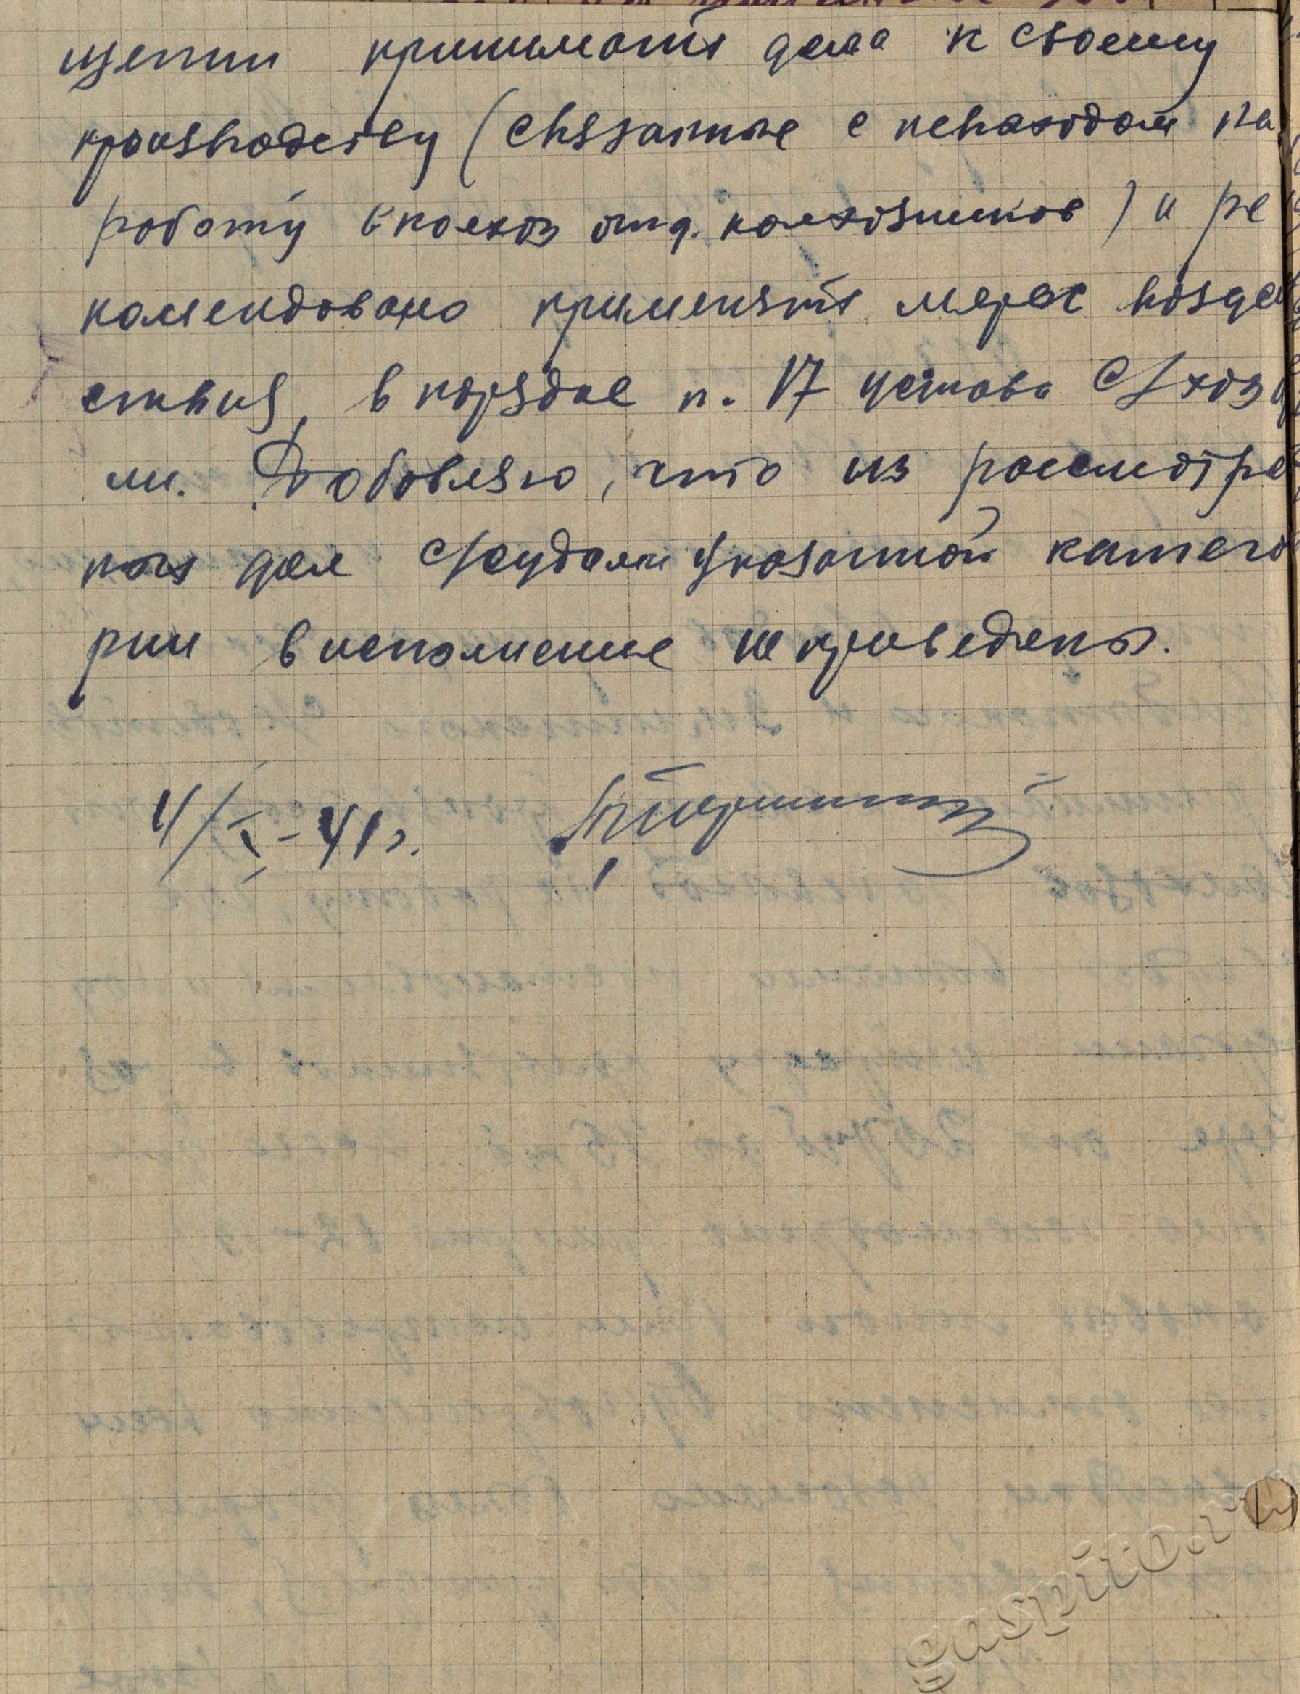 щении принимать дела к своему
производству (связанные с невыходом на
работу в колхоз отд. колхозников) и ре
комендовано применять меры воздей
ствия, в порядке п. 17 устава с/хоз ар
ли. Добавляю, что из рассмотрен
ных дел с/судами указанной катего
рии в исполнение не приведены.
4/X-41г.
gaspito.ru